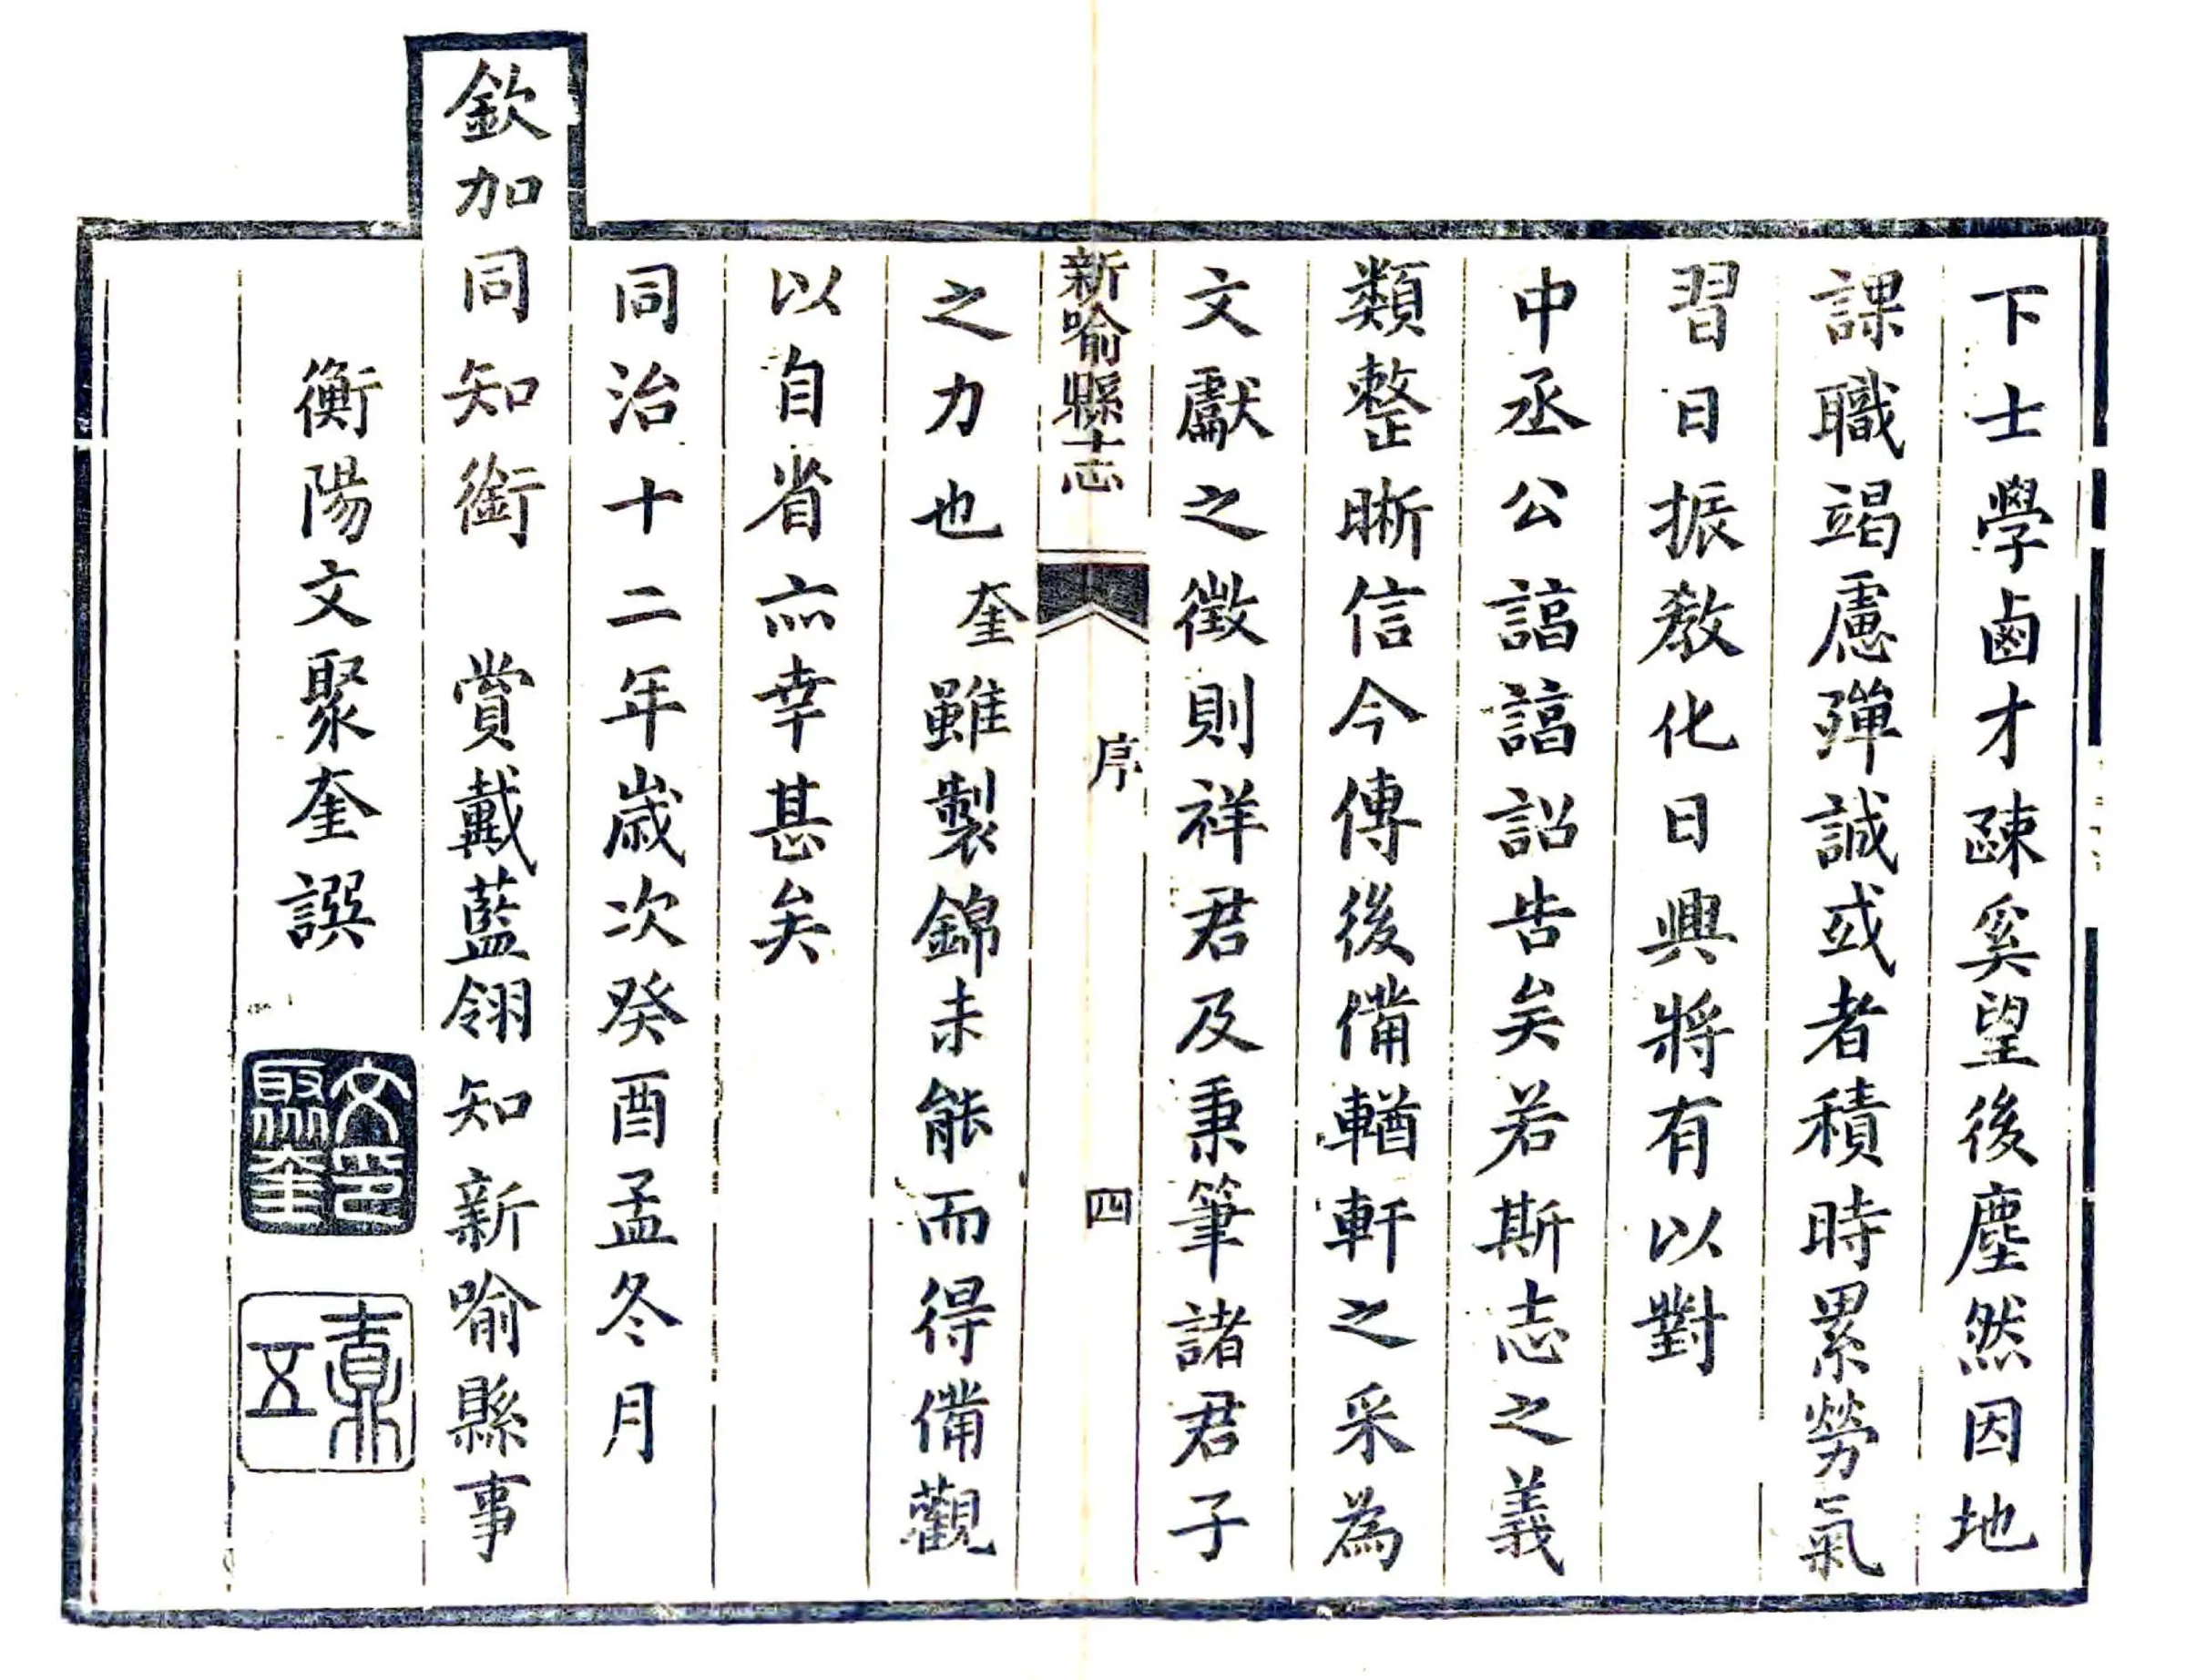 下士學鹵才疎奚望後塵然因地
課職竭慮殫誠或者積時累勞氣
習日振教化日興將有以對
中丞公諄諄詔告矣若斯志之義
類整晰信今傳後備輶軒之采為
文獻之徵則祥君及秉筆諸君子
新喻縣志
序
四
之力也奎雖製錦未能而得備觀
以自省亦幸甚矣
同治十二年歲次癸酉孟冬月
欽加同知銜 賞戴藍翎知新喻縣事
衡陽文聚奎譔
文聚奎印